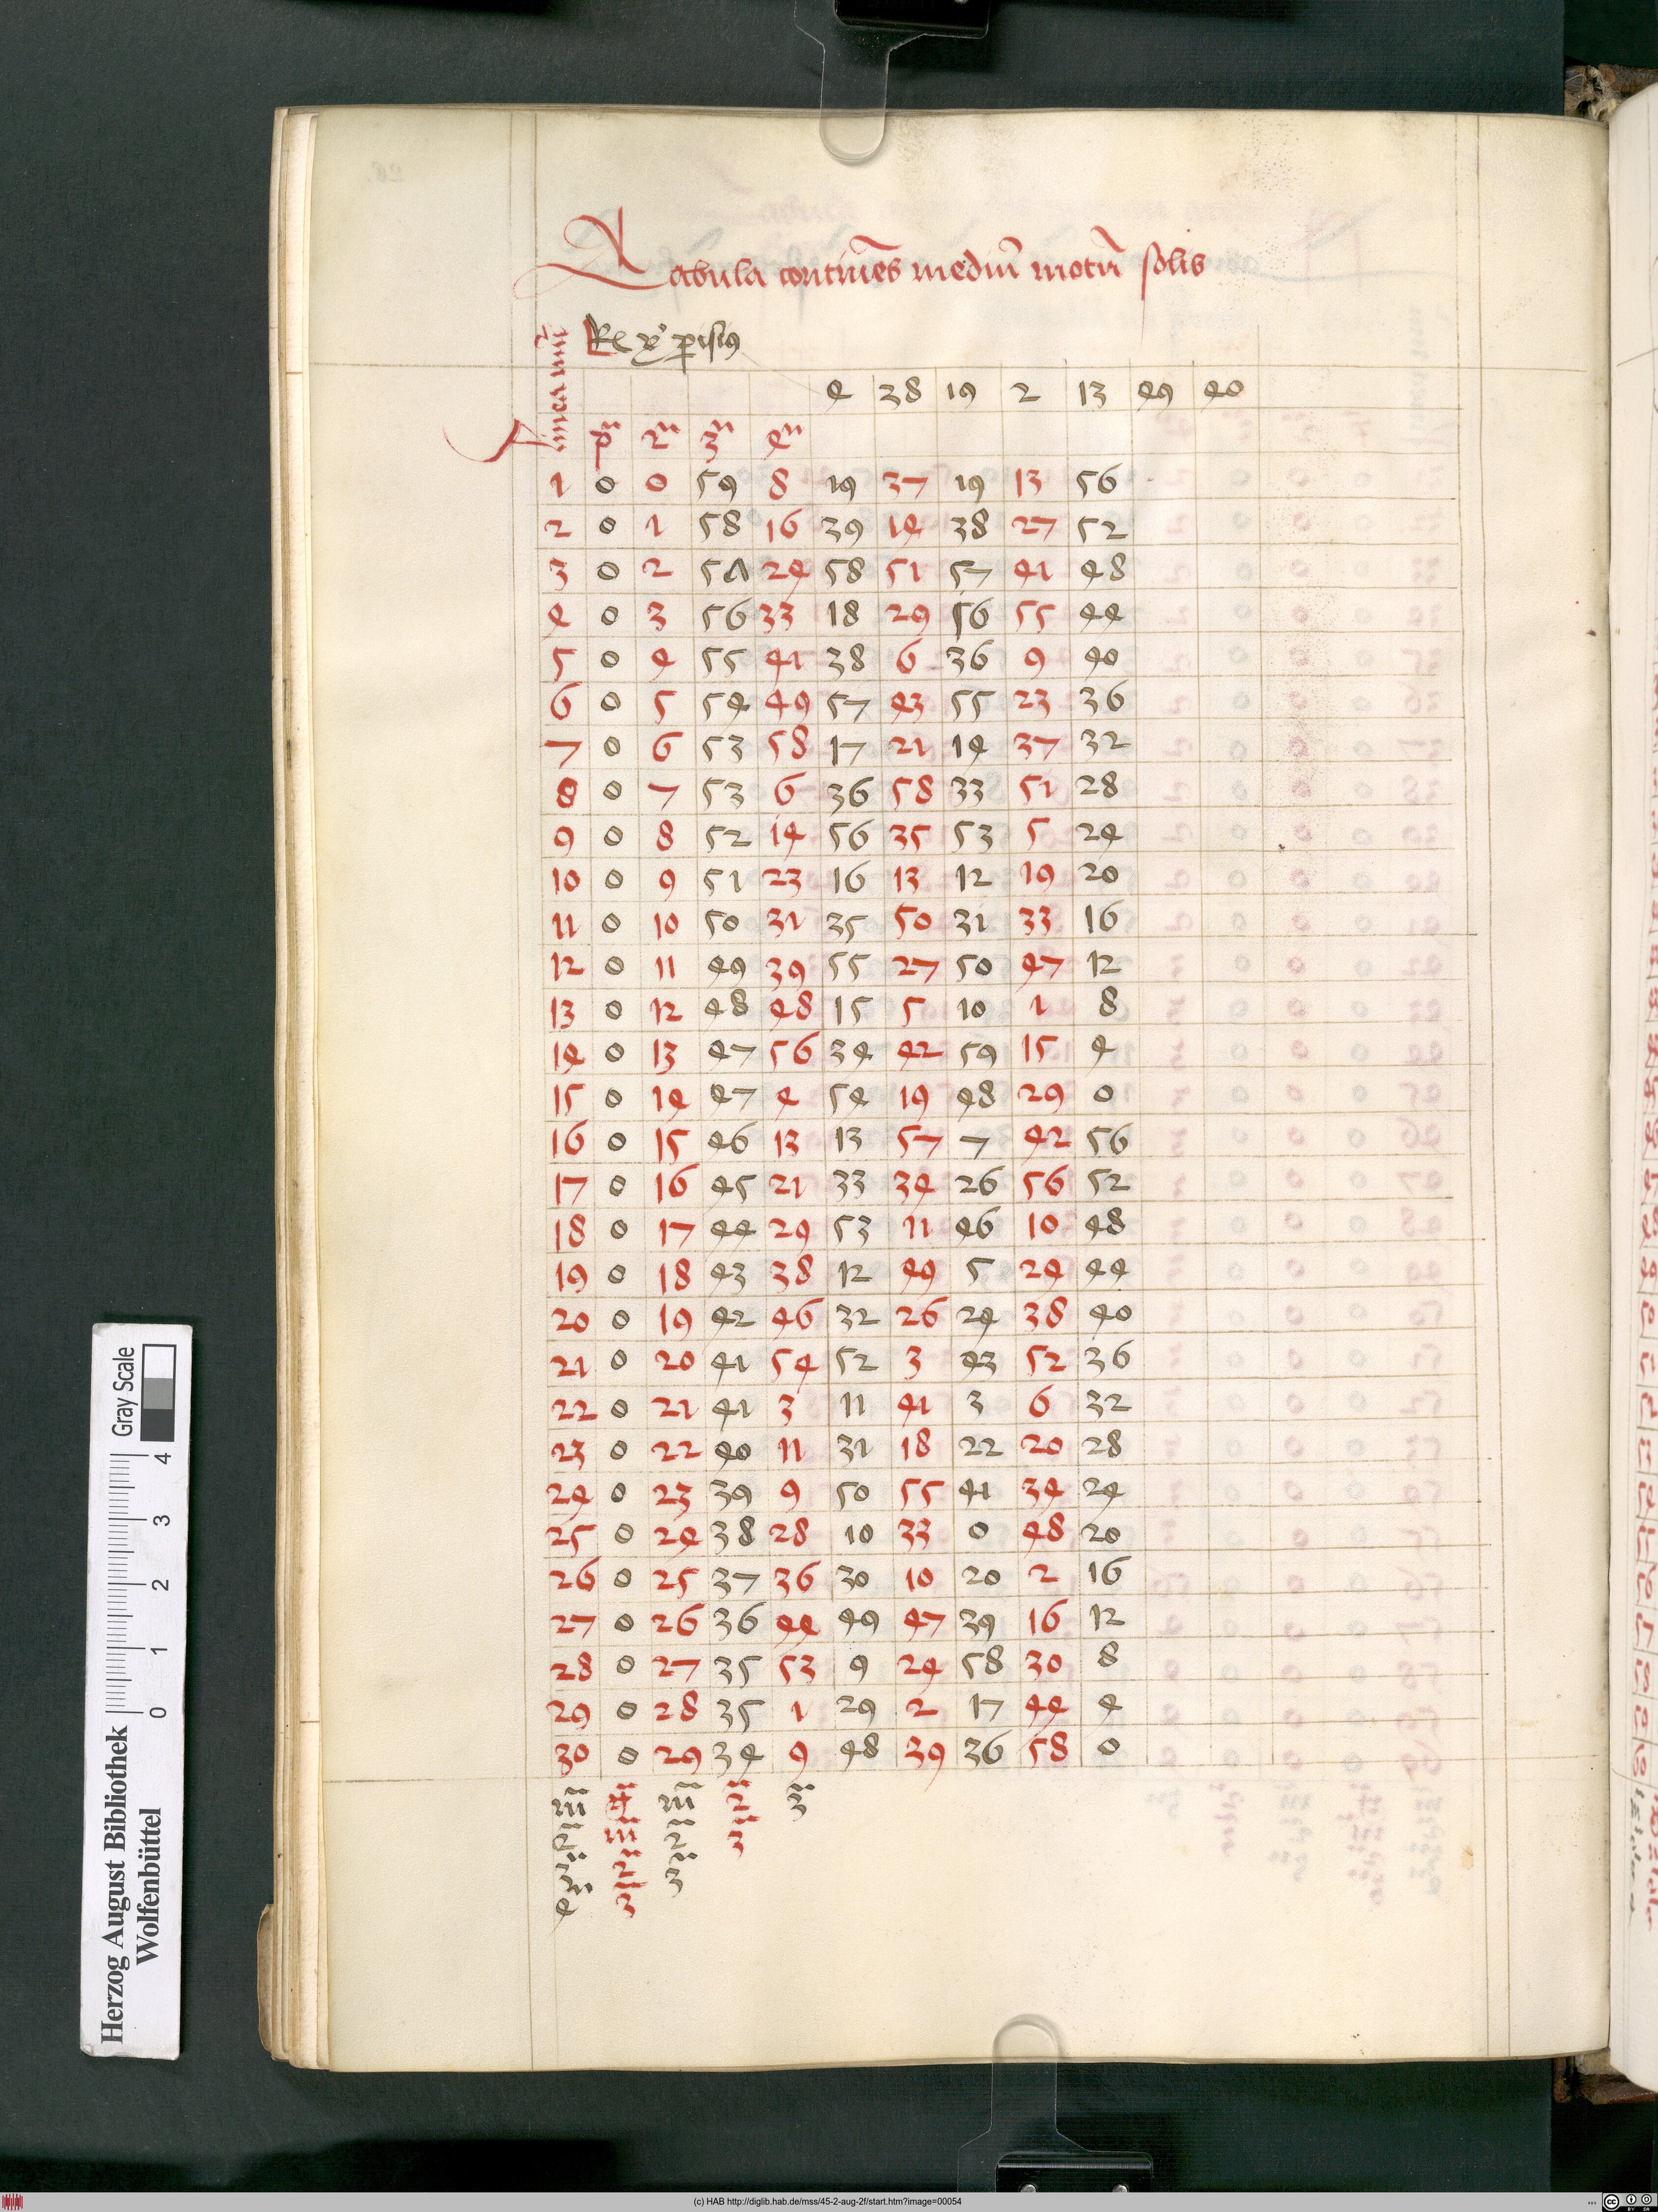 Tabula continēs mediū motū solis
4 38 19 2 13 49 40
1 0 0 59 8 19 37 19 13 56
2 0 1 58 16 39 14 38 27 52
3 0 2 5Λ 24 58 51 57 41 48
4 0 3 56 33 18 29 16 55 44
5 0 4 55 41 38 6 36 9 40
6 0 5 54 49 57 43 55 23 36
7 0 6 53 58 17 21 14 37 32
8 0 7 53 6 36 58 33 51 28
9 0 8 52 14 56 35 53 5 24
10 0 9 51 23 16 13 12 19 20
11 0 10 50 31 35 50 31 33 16
12 0 11 49 39 55 27 50 47 12
13 0 12 48 48 15 5 10 1 8
14 0 13 47 56 34 42 59 15 4
15 0 14 47 4 54 19 48 29 0
16 0 15 46 13 13 57 7 42 56
17 0 16 45 21 33 34 26 56 52
18 0 17 44 29 53 11 46 10 48
19 0 18 43 38 12 49 5 24 44
20 0 19 42 46 32 26 24 38 40
21 0 20 41 54 52 3 43 52 36
22 0 21 41 3 11 41 3 6 32
23 0 22 40 11 31 18 22 20 28
24 0 23 39 9 50 55 41 34 24
25 0 24 38 28 10 33 0 48 20
26 0 25 37 36 30 10 20 2 16
27 0 26 36 44 49 47 39 16 12
28 0 27 35 53 9 24 58 30 8
29 0 28 35 1 29 2 17 44 4
30 0 29 34 9 48 39 36 58 0
Gray Scale
0 1 2 3 4
Herzog August Bibliothek
Wolfenbüttel
(c) HAB http://diglib.hab.de/mss/45-2-aug-2f/start.htm?image=00054